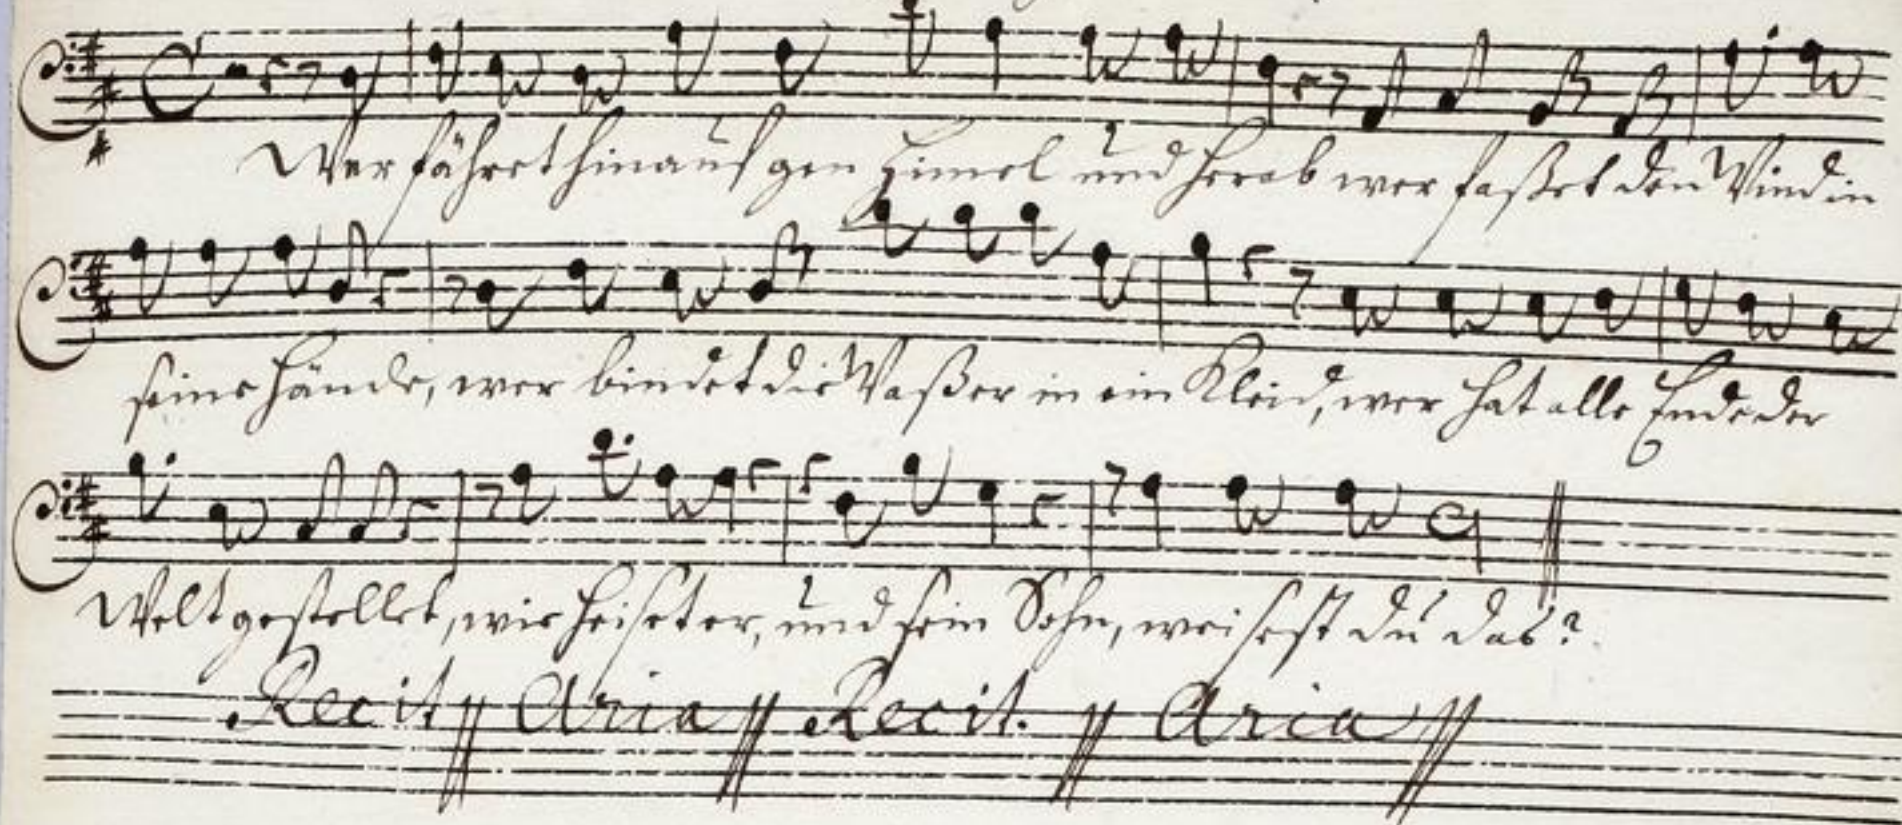 Wer fähret hinauf gen Himel und herab wer faßet den Wind in
seine Hände, wer bindet die Waßer in ein Kleid, wer hat alle Ende der
Welt gestellet, wie heiset er, und sein Sohn, weisest du das?
Recit Aria Recit. Aria